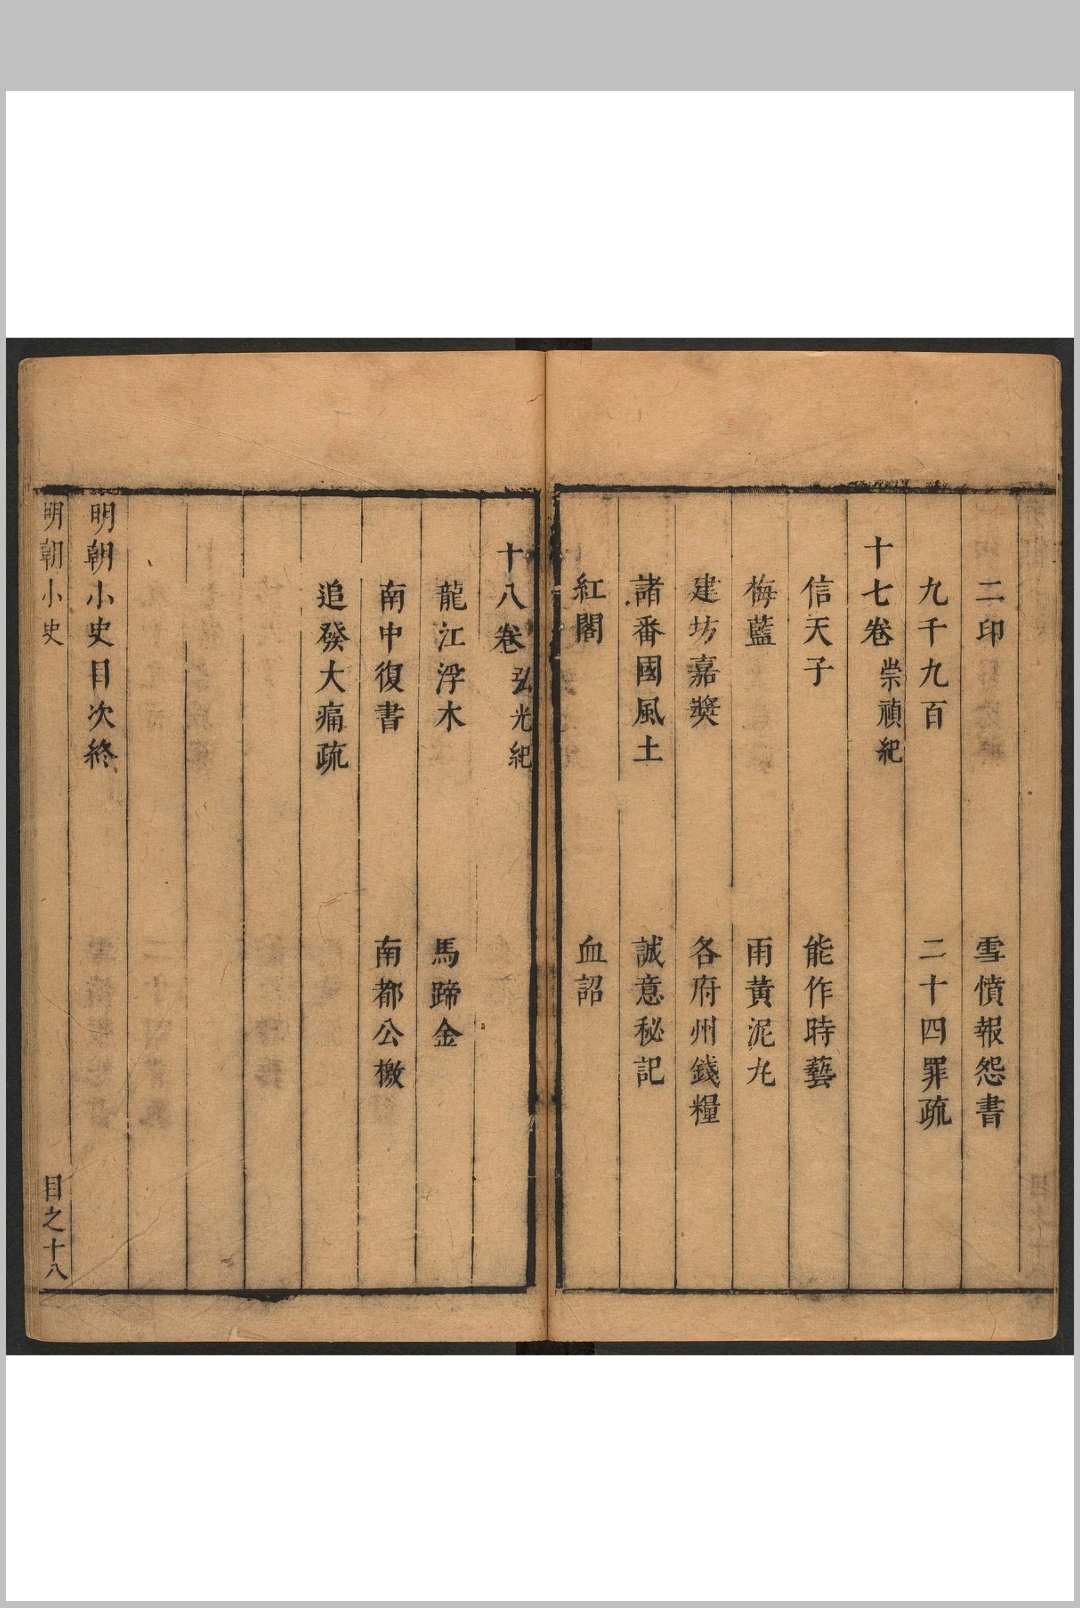 二印　雪憤報怨書
九千九百　二十四罪疏
十七卷 崇禎紀
信天子　能作時藝
梅藍　雨黃泥丸
建坊嘉獎　各府州錢糧
諸番國風土　誠意秘記
紅閣　血詔
十八卷 弘光紀
龍江浮木　馬蹄金
南中復書　南都公檄
追發大痛疏
明朝小史目次終
明朝小史　目之十八